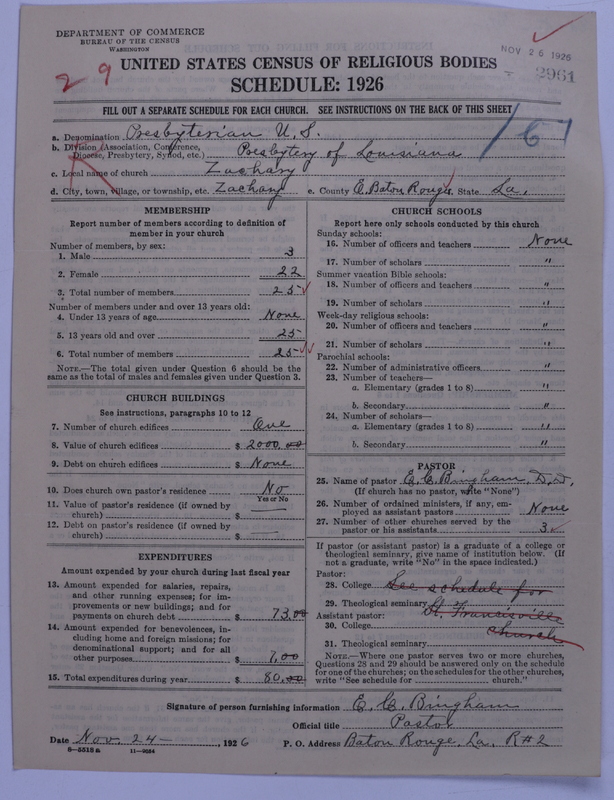 DEPARTMENT OF COMMERCE
BUREAU OF THE CENSUS
WASHINGTON
NOV 26 1926
2961
29
UNITED STATES CENSUS OF RELIGIOUS BODIES
SCHEDULE: 1926
FILL OUT A SEPARATE SCHEDULE FOR EACH CHURCH. SEE INSTRUCTIONS ON THE BACK OF THIS SHEET
a. Denomination Presbyterian U. S.
b. Division (Association, Conference, Diocese, Presbytery, Synod, etc.) Presbytery of Louisiana
c. Local name of church Zachary
d. City, town, village, or township, etc. Zachary e. County E. Baton Rouge, State La.
MEMBERSHIP
Report number of members according to definition of
member in your church
Number of members, by sex:
1. Male 3
2. Female 22
3. Total number of members 25
Number of members under and over 13 years old:
4. Under 13 years of age None
5. 13 years old and over 25
6. Total number of members 25
NOTE.—The total given under Question 6 should be the
same as the total of males and females given under Question 3.
CHURCH BUILDINGS
See instructions, paragraphs 10 to 12
7. Number of church edifices One
8. Value of church edifices $ 2000.00
9. Debt on church edifices $ None
10. Does church own pastor's residence No
Yes or No
11. Value of pastor's residence (if owned by
church) $ —
12. Debt on pastor's residence (if owned by
church) $ —
EXPENDITURES
Amount expended by your church during last fiscal year
13. Amount expended for salaries, repairs,
and other running expenses; for im-
provements or new buildings; and for
payments on church debt $ 73.00
14. Amount expended for benevolences, in-
cluding home and foreign missions; for
denominational support; and for all
other purposes $ 7.00
15. Total expenditures during year $ 80.00
CHURCH SCHOOLS
Report here only schools conducted by this church
Sunday schools:
16. Number of officers and teachers None
17. Number of scholars "
Summer vacation Bible schools:
18. Number of officers and teachers "
19. Number of scholars "
Week-day religious schools:
20. Number of officers and teachers "
21. Number of scholars "
Parochial schools:
22. Number of administrative officers "
23. Number of teachers—
a. Elementary (grades 1 to 8) "
b. Secondary "
24. Number of scholars—
a. Elementary (grades 1 to 8) "
b. Secondary "
PASTOR
25. Name of pastor E. C. Bingham, D.D.
(If church has no pastor, write "None")
26. Number of ordained ministers, if any, em-
ployed as assistant pastors None
27. Number of other churches served by the
pastor or his assistants 3
If pastor (or assistant pastor) is a graduate of a college or
theological seminary, give name of institution below. (If
not a graduate, write "No" in the space indicated.)
Pastor:
28. College See schedule for
29. Theological seminary St. Francisville
Assistant pastor:
30. College church
31. Theological seminary
NOTE.—Where one pastor serves two or more churches,
Questions 28 and 29 should be answered only on the schedule
for one of the churches; on the schedules for the other churches,
write "See schedule for church."
Signature of person furnishing information E. C. Bingham
Official title Pastor
Date Nov. 24 — , 1926 P. O. Address Baton Rouge, La. R#2
8—5518a 11—9034